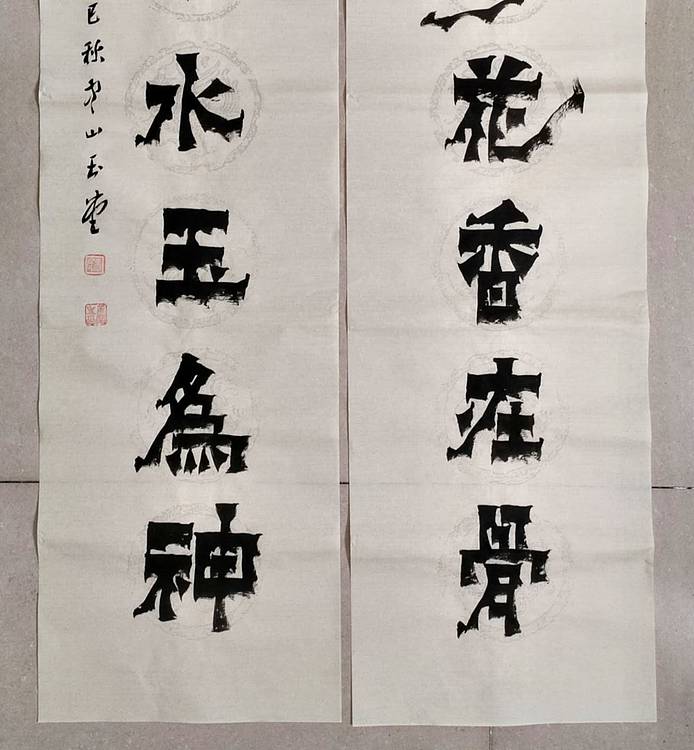 花香在骨
水玉為神
巳秋
山玉堂